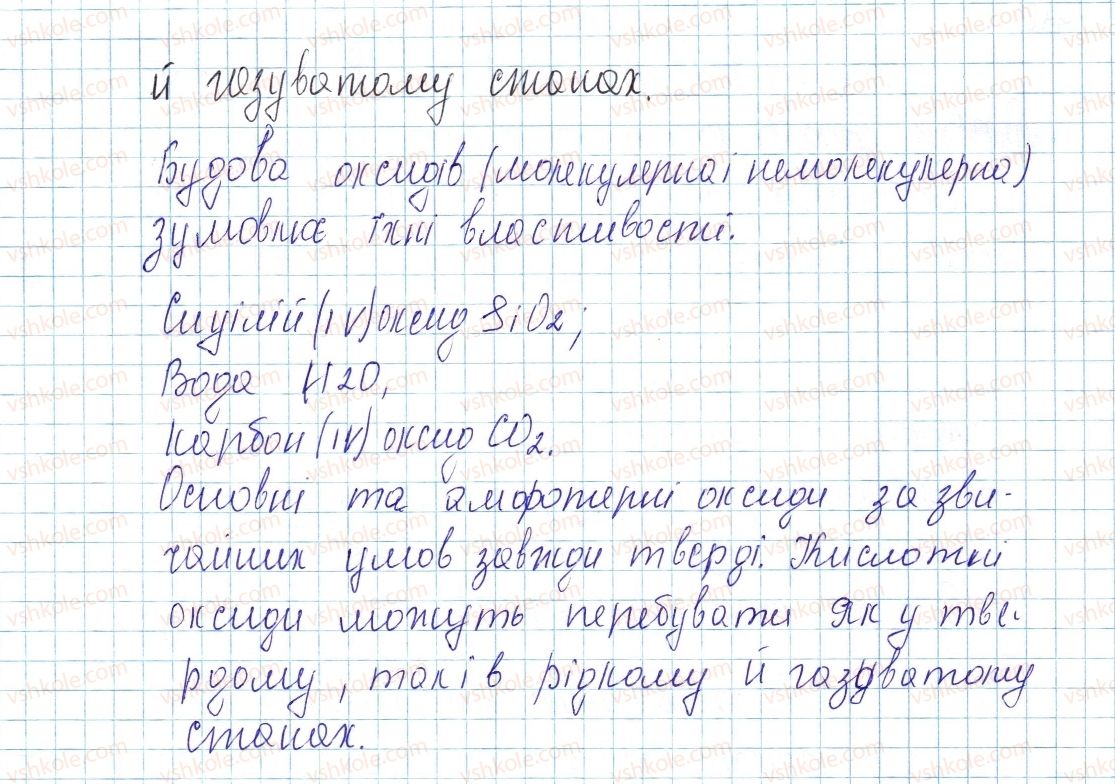 й газуватому станах.
Будова оксидів (молекулерна і немолекулерна)
зумовлює їхні властивості.
Силілій (IV) оксид SiO2;
Вода H2O,
Карбон (IV) оксид CO2.
Основні та амфотерні оксиди за зви-
чайних умов завжди тверді. Кислотні
оксиди можуть перебувати як у тве-
рдому, так і в рідкому й газуватому
станах.